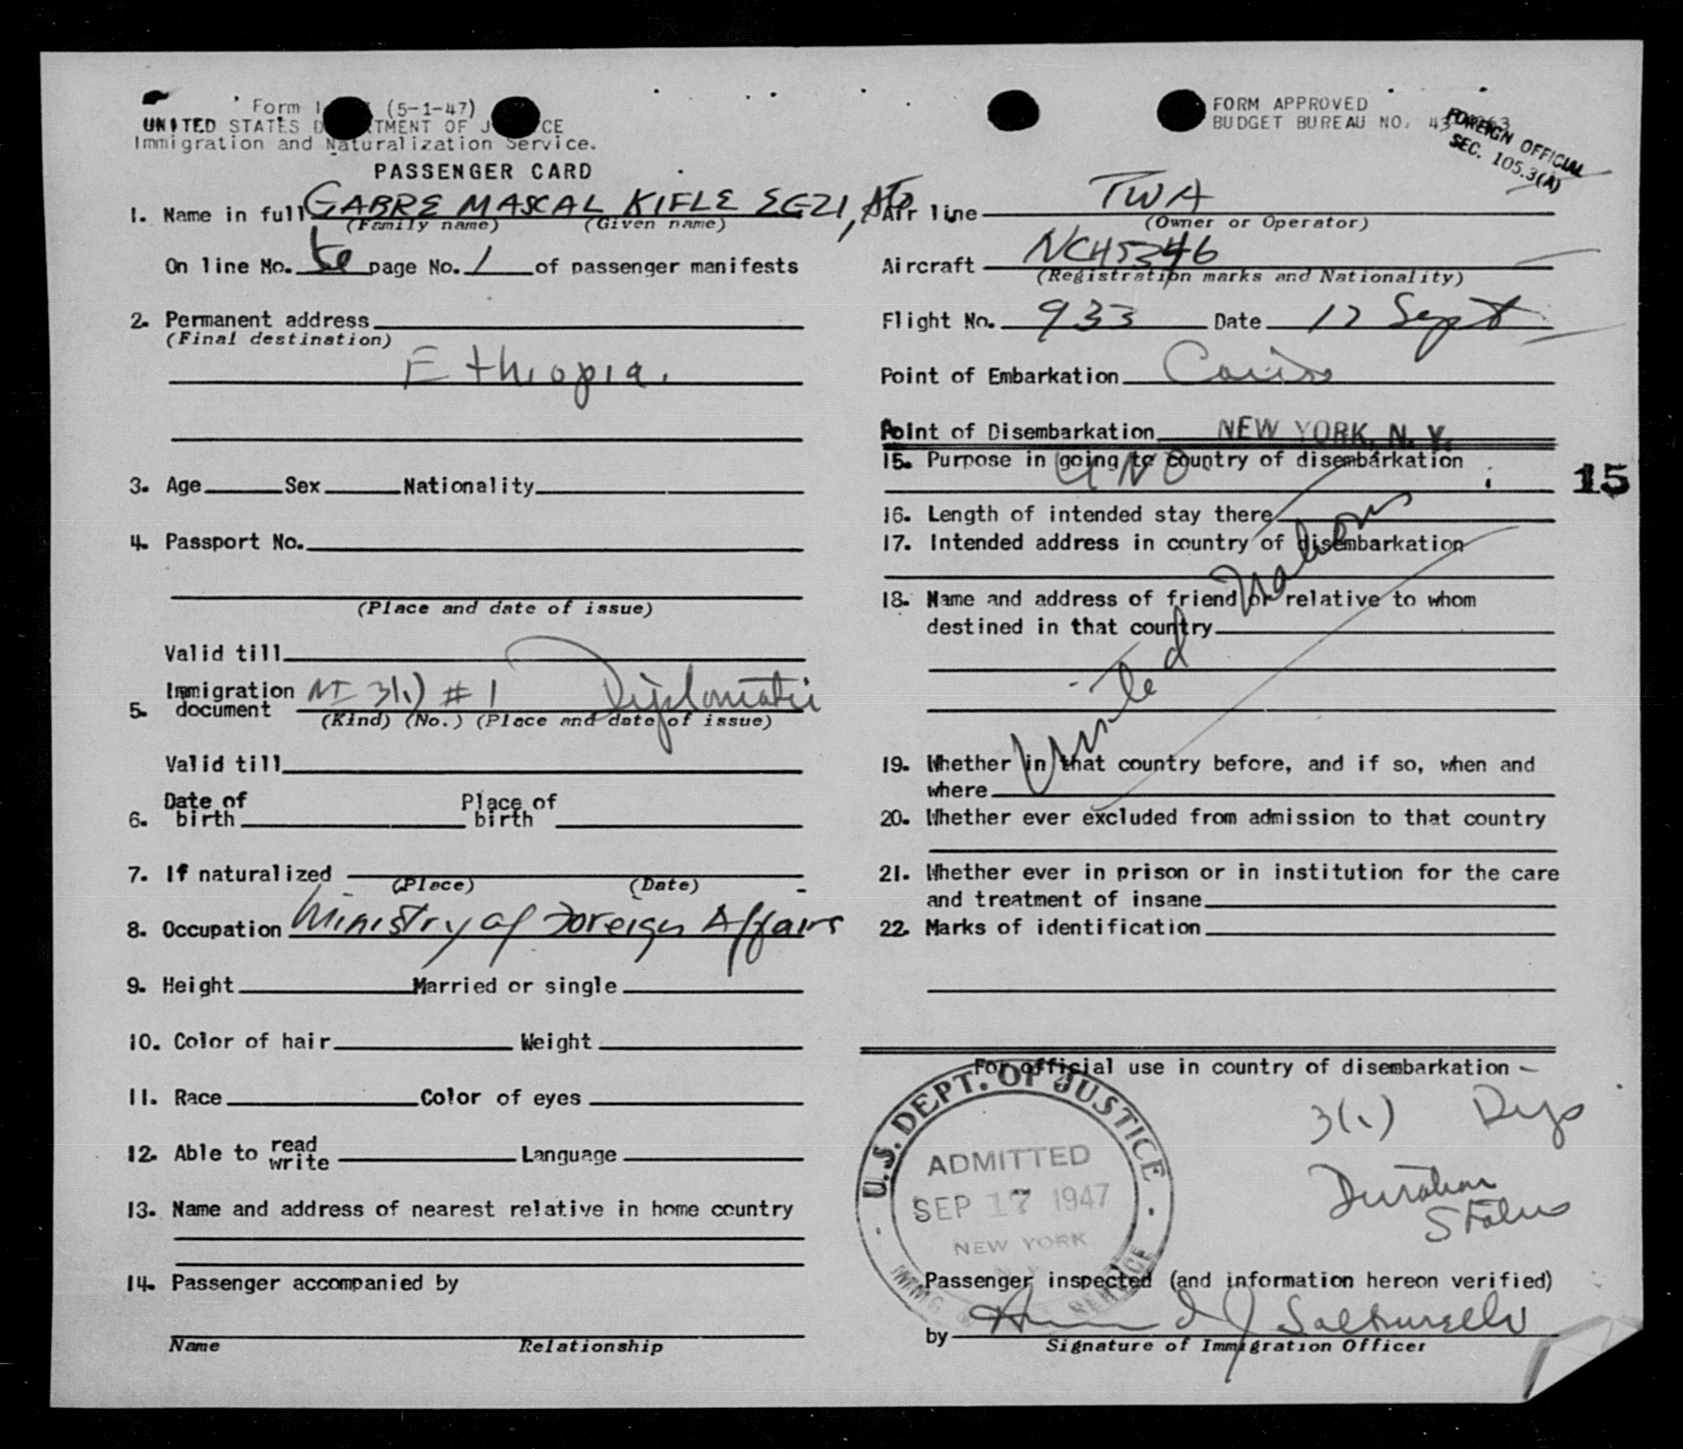 Form I (5-1-47)
UNITED STATES D TMENT OF J CE
Immigration and Naturalization Service.
PASSENGER CARD
FORM APPROVED
BUDGET BUREAU NO.
FOREIGN OFFICIAL
SEC. 105.3(A)
1. Name in full GABRE MASCAL KIFLE EGZI, ATO
(Family name) (Given name)
On line No. page No. 1 of passenger manifests
2. Permanent address
(Final destination)
Ethiopia.
3. Age Sex Nationality
4. Passport No.
(Place and date of issue)
Valid till
5. Immigration document 3(1) # 1 Diplomatic
(Kind) (No.) (Place and date of issue)
Valid till
6. Date of birth Place of birth
7. If naturalized
(Place) (Date)
8. Occupation Ministry of Foreign Affairs
9. Height Married or single
10. Color of hair Weight
11. Race Color of eyes
12. Able to read write Language
13. Name and address of nearest relative in home country
14. Passenger accompanied by
Name Relationship
Air line TWA
(Owner or Operator)
Aircraft
(Registration marks and Nationality)
Flight No. 933 Date 17 Sept
Point of Embarkation Cairo
Point of Disembarkation NEW YORK, N. Y.
15. Purpose in going to country of disembarkation
UNO
15
16. Length of intended stay there
17. Intended address in country of disembarkation
18. Name and address of friend or relative to whom
destined in that country
United Nations
19. Whether in that country before, and if so, when and
where
20. Whether ever excluded from admission to that country
21. Whether ever in prison or in institution for the care
and treatment of insane
22. Marks of identification
For official use in country of disembarkation
U.S. DEPT. OF JUSTICE
ADMITTED
SEP 17 1947
NEW YORK
IMMIG SERVICE
3(1) Dip
Duration
Status
Passenger inspected (and information hereon verified)
by
Signature of Immigration Officer